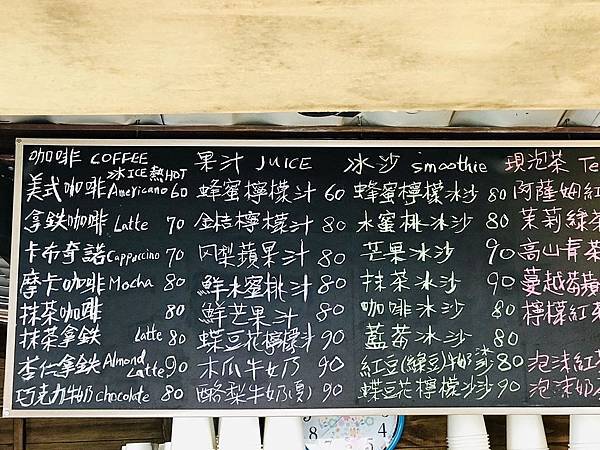 咖啡 COFFEE
冰ICE 熱HOT
美式咖啡 Americano 60
拿鉄咖啡 Latte 70
卡布奇諾 Cappuccino 70
摩卡咖啡 Mocha 80
抹茶咖啡 80
抹茶拿鉄 Latte 80
杏仁拿鉄 Almond Latte 90
巧克力牛奶 chocolate 80
果汁 JUICE
蜂蜜檸檬汁 60
金桔檸檬汁 80
凤梨蘋果汁 80
鮮水蜜桃汁 80
鮮芒果汁 80
蝶豆花檸檬汁 90
木瓜牛奶 90
酪梨牛奶(濃) 90
冰沙 smoothie
蜂蜜檸檬冰沙 80
水蜜桃冰沙 80
芒果冰沙 90
抹茶冰沙 90
咖啡冰沙 80
藍莓冰沙 80
紅豆(綠豆)牛奶冰沙 80
蝶豆花檸檬冰沙 90
現泡茶 Te
阿薩姆紅
茉莉綠茶
高山青茶
蔓越莓
檸檬紅茶
泡沫紅
泡沫奶